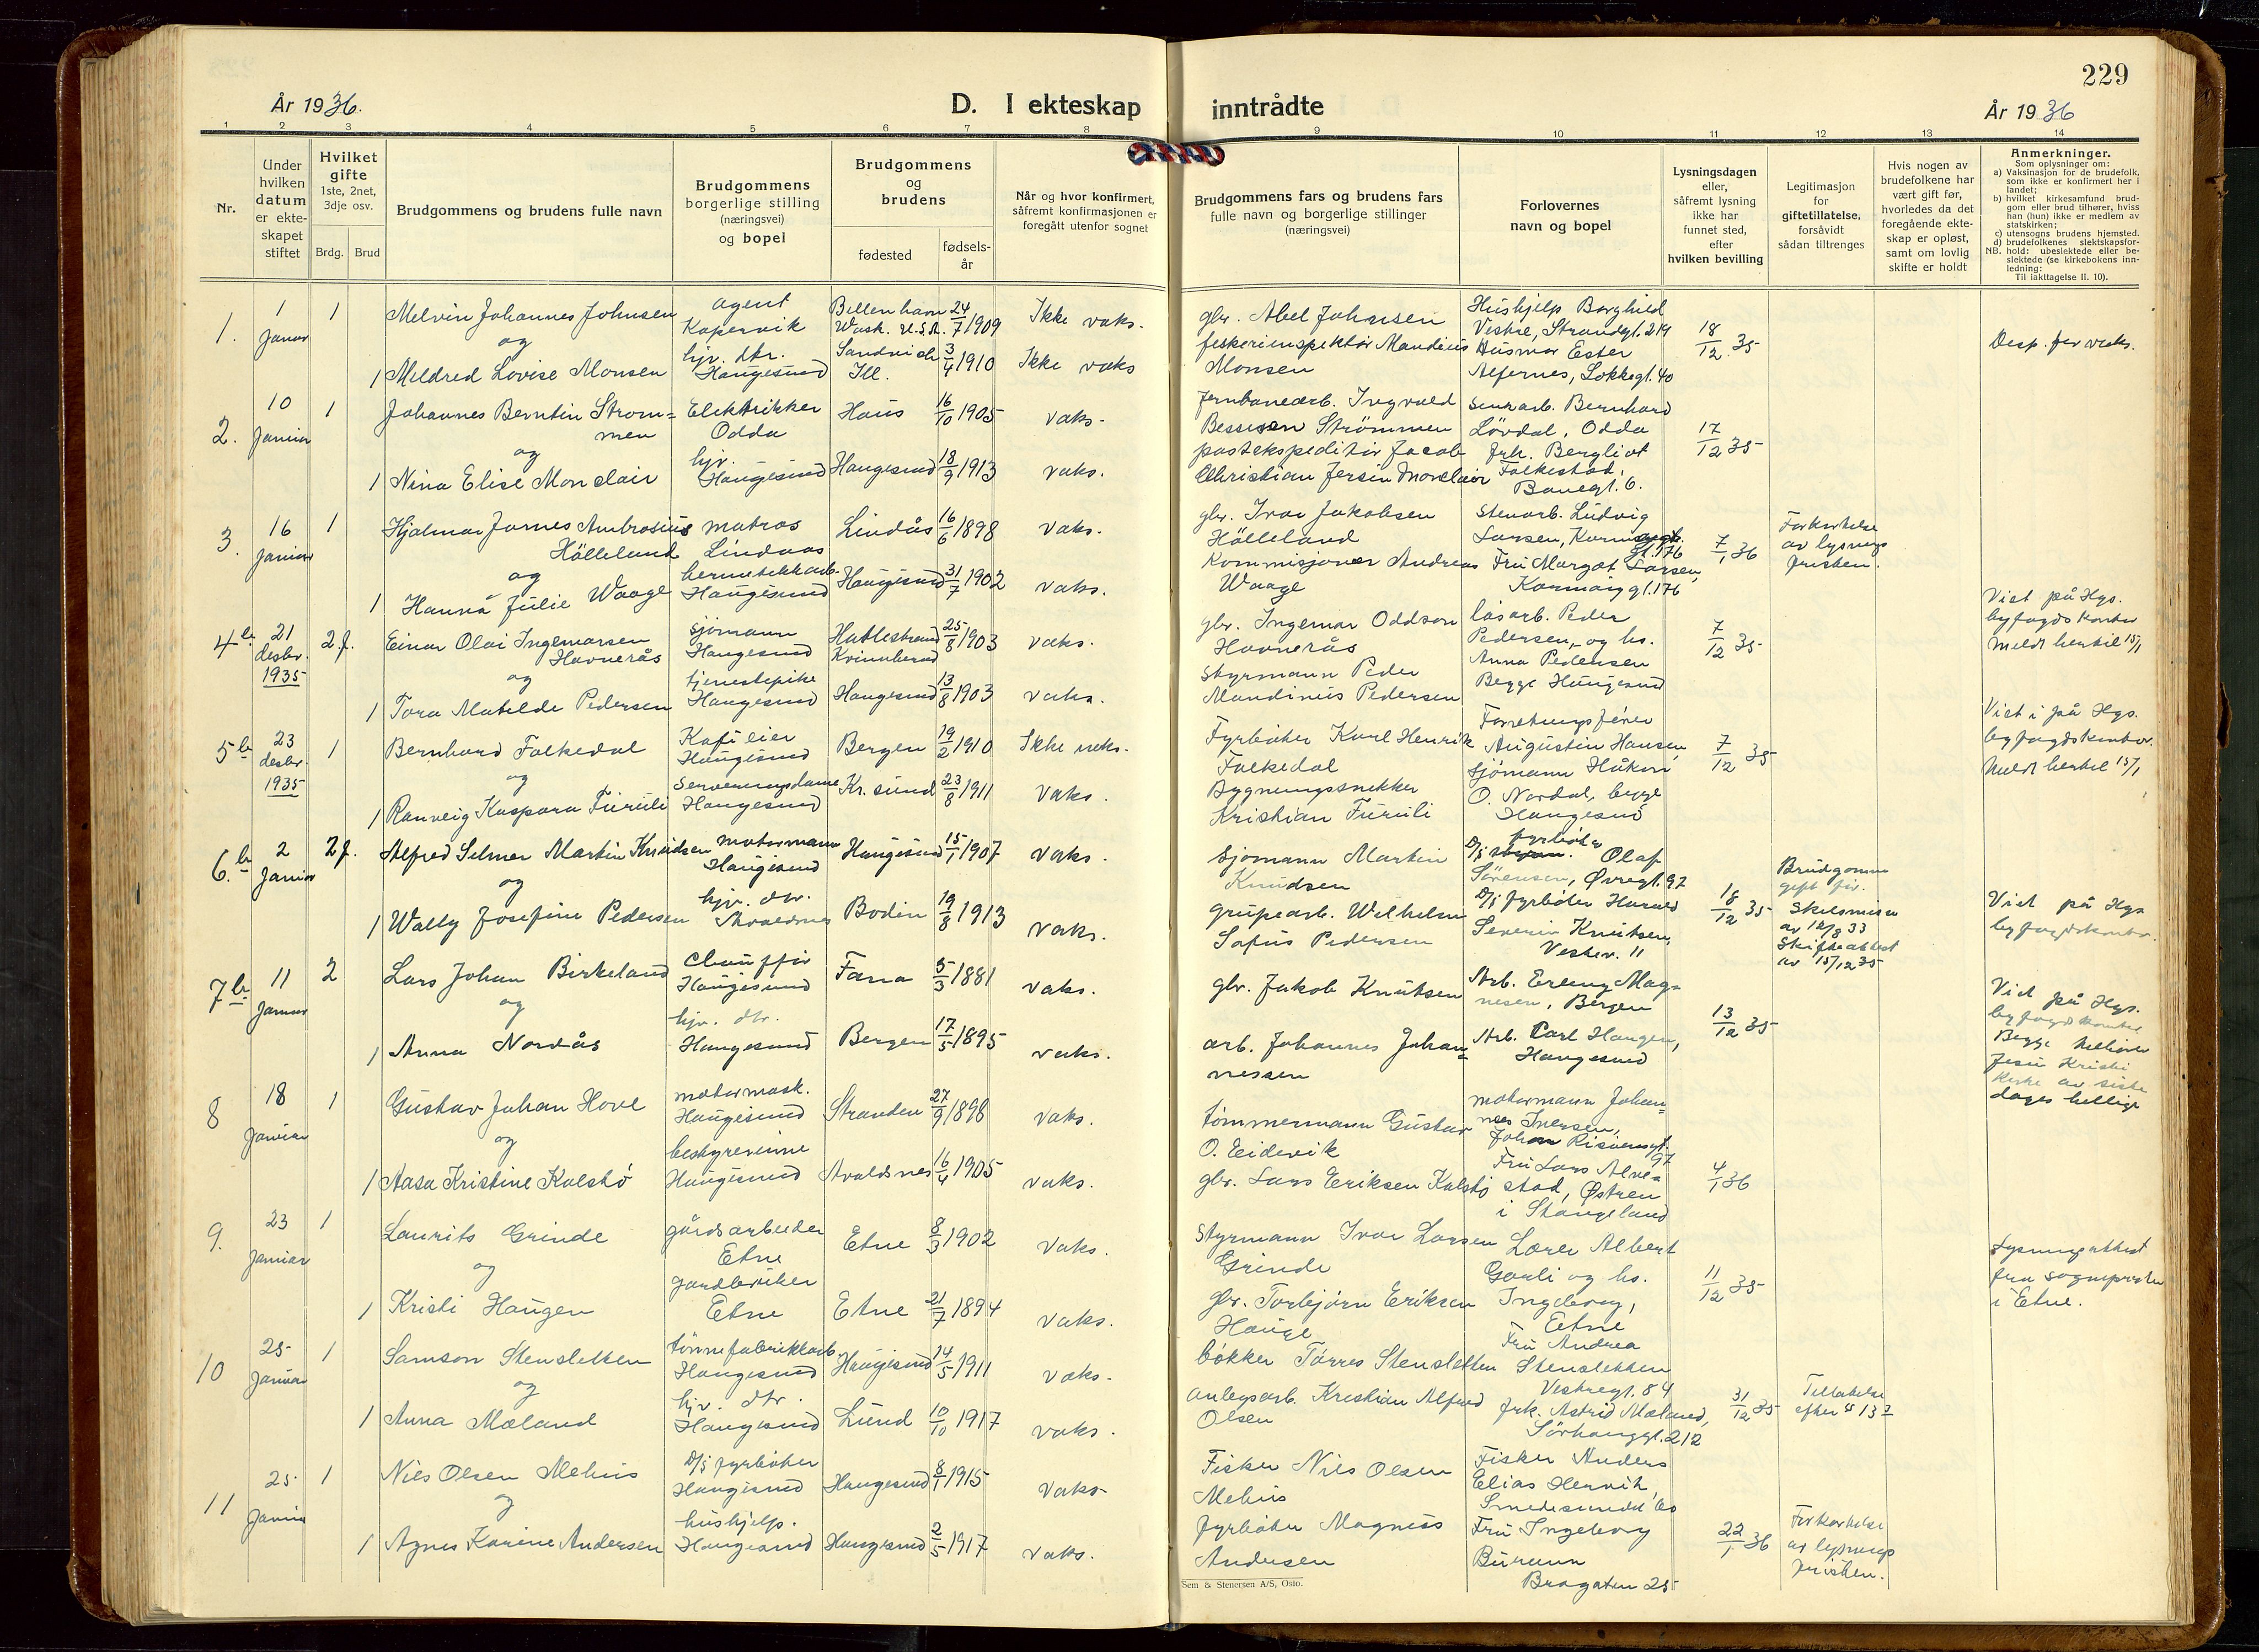 229
År 1936.
D. I ekteskap inntrådte
År 1936
1 2 3 4 5 6 7 8 9 10 11 12 13 14
Nr.
Under hvilken datum er ekte-skapet stiftet
Hvilket gifte
1ste, 2net, 3dje osv.
Brdg. Brud
Brudgommens og brudens fulle navn
Brudgommens borgerlige stilling (næringsvei) og bopel
Brudgommens og brudens
fødested
fødsels-år
Når og hvor konfirmert, såfremt konfirmasjonen er foregått utenfor sognet
Brudgommens fars og brudens fars fulle navn og borgerlige stillinger (næringsvei)
Forlovernes navn og bopel
Lysningsdagen eller, såfremt lysning ikke har funnet sted, efter hvilken bevilling
Legitimasjon for giftetillatelse, forsåvidt sådan tiltrenges
Hvis nogen av brudefolkene har vært gift før, hvorledes da det foregående ekte-skap er opløst, samt om lovlig skifte er holdt
Anmerkninger.
Som oplysninger om:
a) Vaksinasjon for de brudefolk, som ikke er konfirmert her i landet;
b) hvilket kirkesamfund brud-gom eller brud tilhører, hviss han (hun) ikke er medlem av statskirken;
c) utensogns brudens hjemsted.
d) brudefolkenes slektskapsfor-
NB. hold: ubeslektede eller be-slektede (se kirkebokens inn-ledning:
Til iakttagelse II. 10).
1. 1 Januar 1 Melvin Johannes Johnsen agent Kopervik Bellenham Wash. U.S.A. 24/7 1909 Ikke vaks.
og
1 Mildred Lovise Monsen hjv. dtr. Haugesund Sandwich Ill. 3/4 1910 Ikke vaks
gbr. Abel Johnsen
fiskeriinspektør Mandius Monsen
Hushjelp Borghild Vestre, Strandgt. 219
Husmor Ester Alfernes, Lokkegt. 40
18/12 35
Desp. for vaks.
2. 10 Januar 1 Johannes Berntin Strom=men Elektrikker Odda Haus 16/10 1905 vaks.
og
1 Nina Elise Monclair hjv. Haugesund Haugesund 18/9 1913 vaks.
Jernbanearb. Ingvald Bessesen Strömmen
postekspeditör Jacob Christian Jersin Monclair
Bernhard Lövdal, Odda
frk. Bergliot Falkestad, Banegt. 6.
17/12 35
3. 16 Januar 1 Hjalmar James Ambrosius Hölleland matros Lindaas Lindås 16/6 1898 vaks.
og
1 Hanna Julie Waage hermetikkarb. Haugesund Haugesund 31/7 1902 vaks.
gbr. Ivar Jakobsen Hölleland
Kommisjonær Andreas Waage
Stenarb. Ludvig Larsen, gt. 176
Fru Margot Larsen, Karmøygt. 176
7/1 36
Forkortelse av lysnings fristen.
4b. 21 desbr. 1935 2.f. Einar Olai Ingemarsen Havnerås sjömann Haugesund Hattestrand Kvinnherad 25/8 1903 vaks.
og
1 Tora Matilde Pedersen tjenestepike Haugesund Haugesund 13/8 1903 vaks.
gbr. Ingemar Oddson Havnerås
Styrmann Peder Mandinus Pedersen
låsarb. Peder Pedersen, og hs. Anna Pedersen
Begge Haugesund
7/12 35
Viet på Hgs. byfogdskontor
Meldt hertil 15/1
5b 23 desbr. 1935 1 Bernhard Falkedal Kafeeier Haugesund Bergen 19/2 1910 Ikke vaks.
og
1 Ranveig Kaspara Furuli Serveringsdame Haugesund Kr. sund 23/8 1911 vaks.
Fyrböter Karl Henrik Falkedal
Bygningssnekker Kristian Furuli
Forretningsförer Augustin Hansen,
Sjömann Håkon O. Nordal, begge Haugesund
7/12 35
Viet i på Hgs. byfogdskontor.
Meldt hertil 15/1
6.b 2 Januar 2 f. Alfred Selmer Martin Knudsen motormann Haugesund Haugesund 15/1 1907 vaks.
og
1 Wally Josefine Pedersen hjv. dtr. Skvaldnes Bodin 19/8 1913 vaks.
Sjömann Martin Knudsen
grupearb. Wilhelm Sofus Pedersen
D/s fyrböter Olaf Sörensen, Øvregt. 97
D/s fyrböter Harald Severin Knutsen, Vesterv. 11
18/12 35
Brudgommen gift för. Skilsmisse av 12/8 33 Skifteattest av 15/12 35
Viet på Hgs byfogdskontor.
7b. 11 Januar 2 Lars Johan Birkeland Chaufför Haugesund Fana 5/3 1881 vaks.
og
1 Anna Nordås hjv. dtr. Haugesund Bergen 17/5 1895 vaks.
gbr. Jakob Knutsen
arb. Johannes Johan=nessen
Arb. Erling Mag=nesen, Bergen
Arb. Carl Haugen, Haugesund
13/12 35
Viet på Hgs. byfogdskontor
Begge tilhører Jesu Kristi Kirke av siste dages hellige
8 18 Januar 1 Gustav Johan Hove motormask. Haugesund Stranden 27/9 1898 vaks.
og
1 Aasa Kristine Kalstö bestyrerinne Haugesund Avaldsnes 16/4 1905 vaks.
tömmermann Gustav O. Eidevik
gbr. Lars Eriksen Kalstö
motormann Johan=nes Iversen, Risöengt. 97
Fru Lars Alve=stad, Østren i Stangeland
4/1 36
9. 23 Januar 1 Laurits Grinde gårdsarbeider Etne Etne 8/3 1902 vaks.
og
1 Kristi Haugen gardbruker Etne Etne 21/7 1894 vaks.
Styrmann Ivar Larsen Grinde
gbr. Torbjörn Eriksen Hauge
Lærer Albert Garli og hs. Ingeborg, Etne
11/12 35
Lysningsattest fra sogneprsten i Etne.
10 25 Januar 1 Samson Stensletten tönnefabrikkarb Haugesund Haugesund 14/5 1911 vaks.
og
1 Anna Mæland hjv. dtr. Haugesund Lund 10/10 1917 vaks.
bökker Törres Stensletten
anlegsarb. Kristian Alfred Olsen
Fru Andrea Stensletten Vestregt. 84
frk. Astrid Mæland, Sörhauggt. 212
31/12 35
Tillatelse efter § 13
11 25 Januar 1 Nils Olsen Mehus D/s fyrböter Haugesund Haugesund 8/1 1915 vaks
og
1 Agnes Karine Andersen hushjelp. Haugesund Haugesund 2/5 1917 vaks.
Fisker Nils Olsen Mehus
fyrböter Magnus Andersen
Fisker Anders Elias Henrik,
Fru Ingeborg Burmann Bragaten 25
22/1 36
Forkortelse av lysnings fristen.
Sem & Stenersen A/S, Oslo.